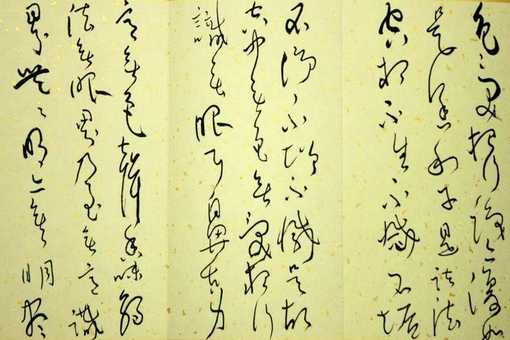 色受想行識亦復如
是舍利子是諸法
空相不生不滅不垢
不淨不增不減是故
空中無色無受想行
識無眼耳鼻舌身
意無色聲香味觸
法無眼界乃至無意識
界無々明亦無明盡